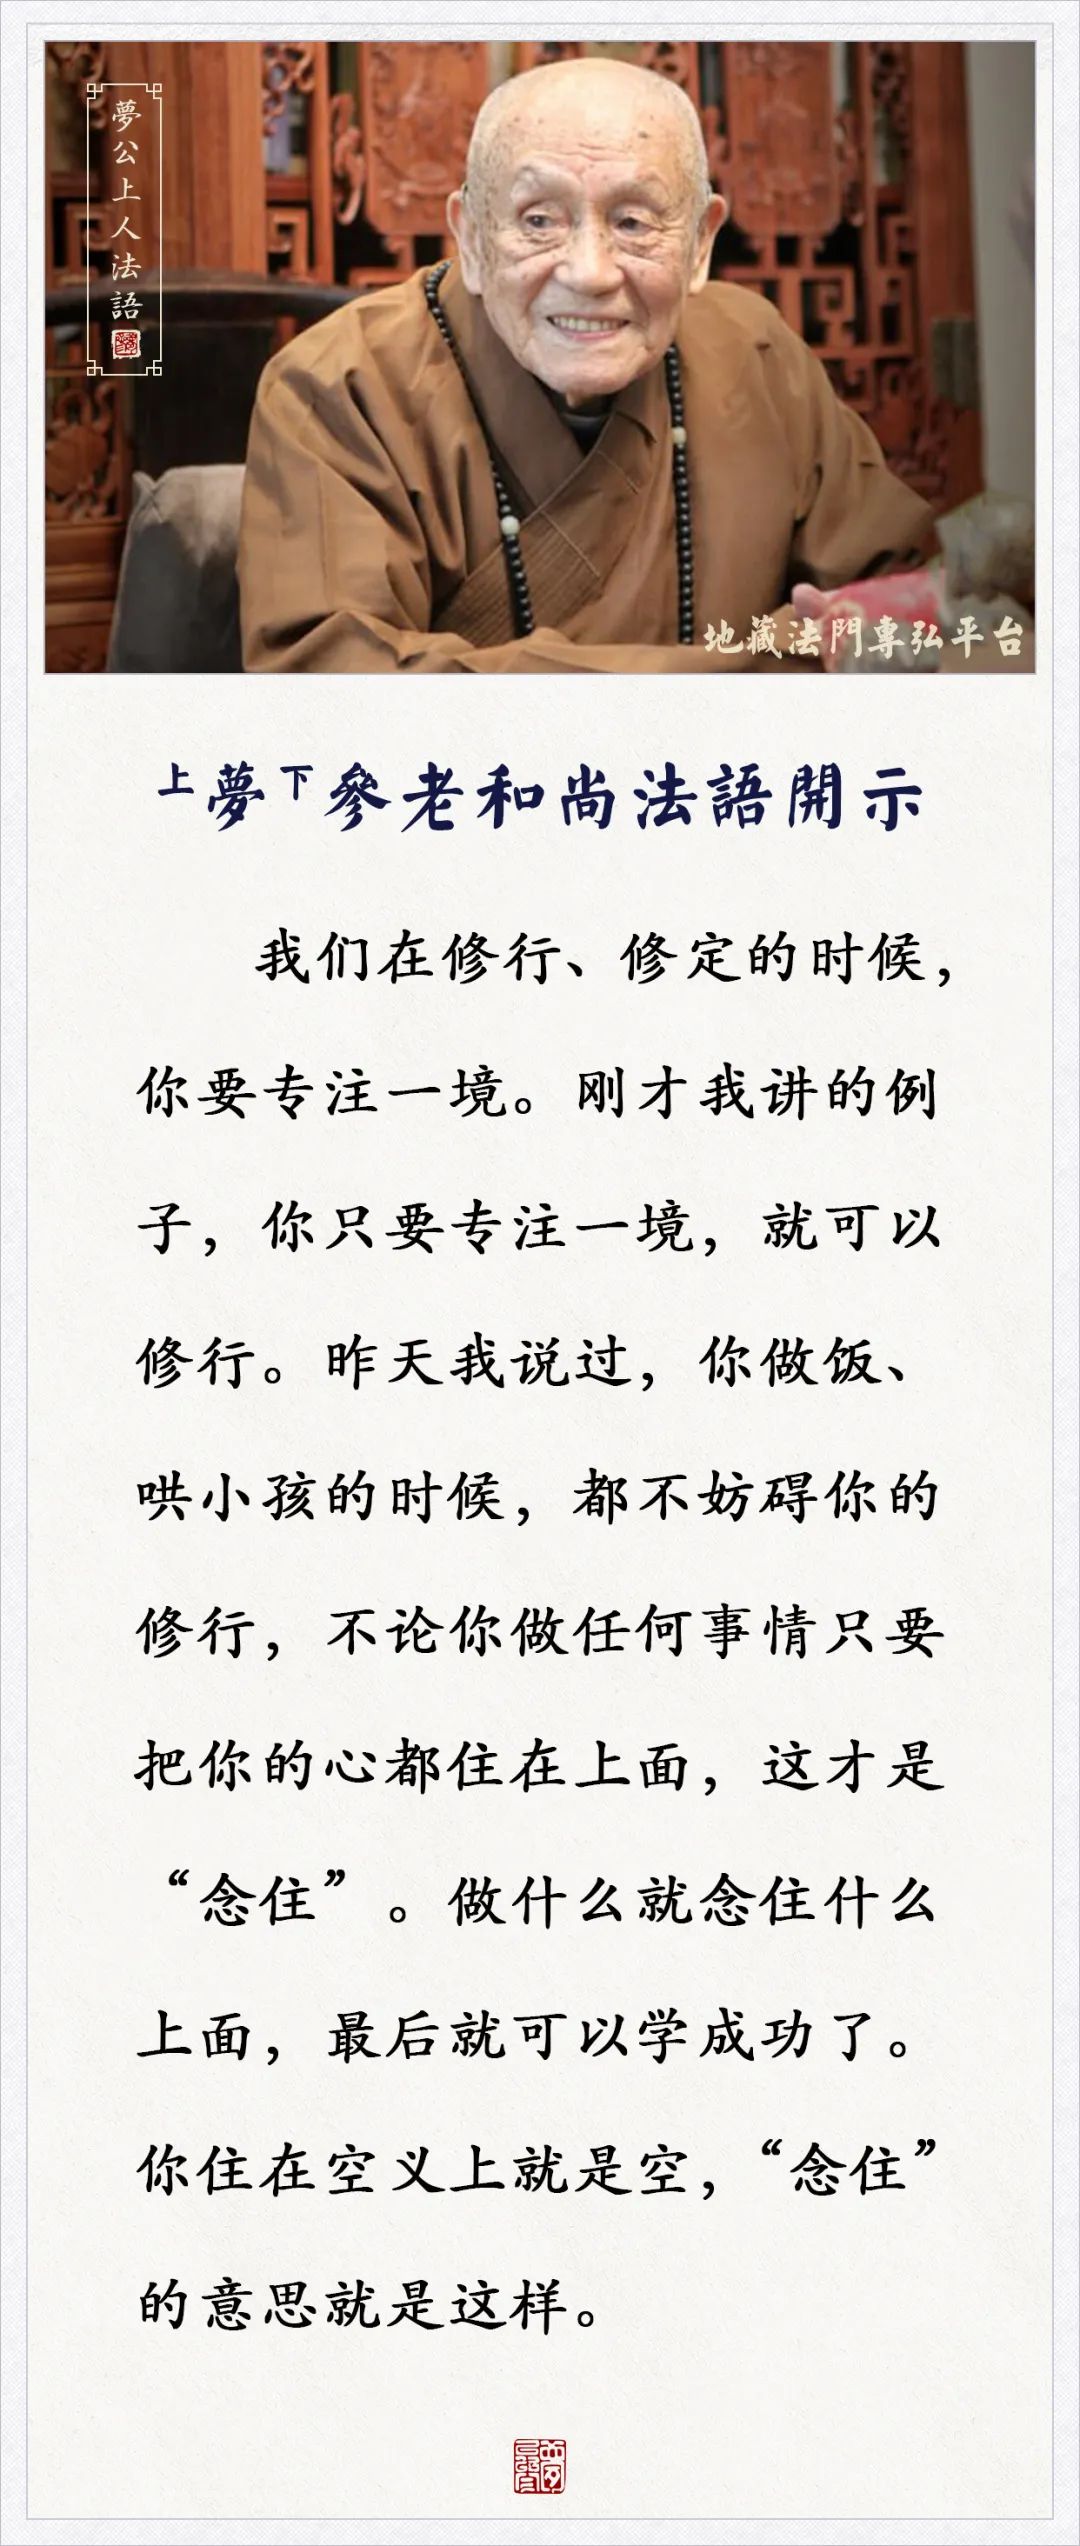 夢公上人法語
地藏法門專弘平台
上夢下參老和尚法語開示
我们在修行、修定的时候，
你要专注一境。刚才我讲的例
子，你只要专注一境，就可以
修行。昨天我说过，你做饭、
哄小孩的时候，都不妨碍你的
修行，不论你做任何事情只要
把你的心都住在上面，这才是
“念住”。做什么就念住什么
上面，最后就可以学成功了。
你住在空义上就是空，“念住”
的意思就是这样。